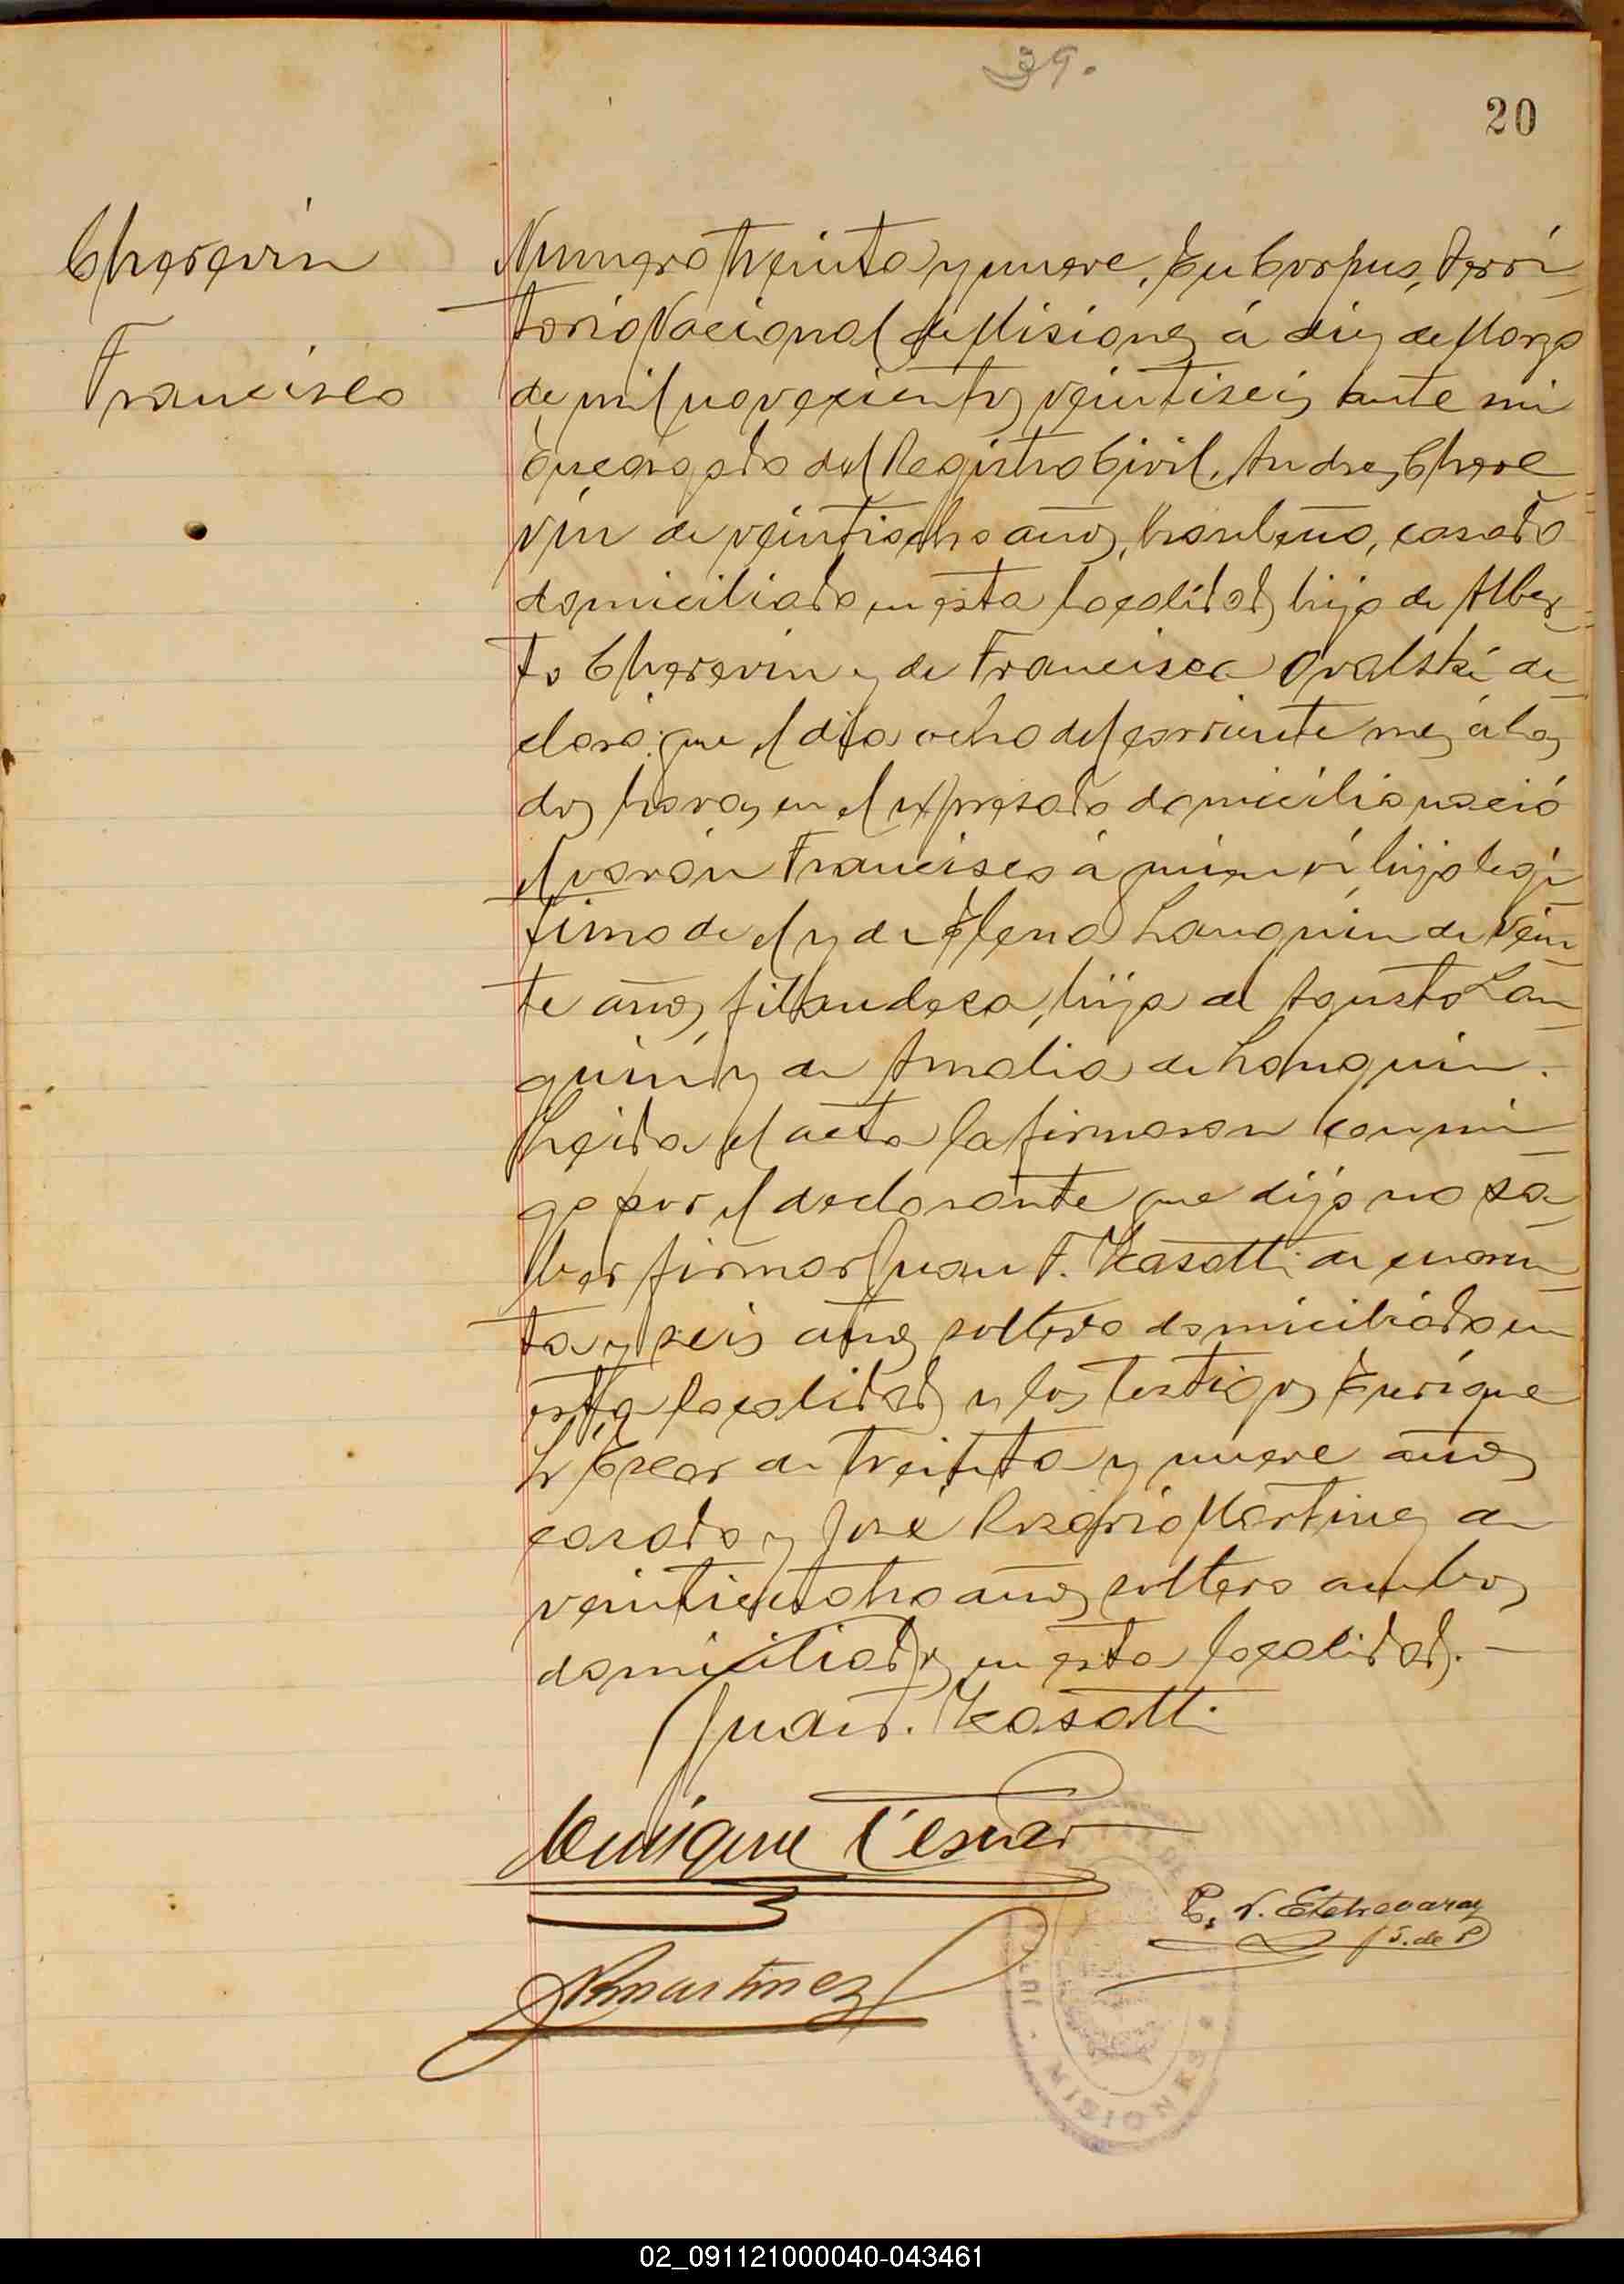 39.
20
Cherevin
Francisco
Numero treinta y nueve. En Corpus, Terri
torio Nacional de Misiones á diez de Marzo
de mil novecientos veintiseis ante mi
Encargado del Registro Civil, Andres Chere
vin de veintiocho años, brasileño, casado
domiciliado en esta localidad, hijo de Alber
to Cherevin y de Francisca Ovalski de
claró: que el dia ocho del corriente mes á las
dos horas en el expresado domicilio nació
el varón Francisco á quien ví hijo legí
timo de el y de Elena Lanquin de vein
te años, filandesa, hija de Agusto Lan
quin y de Amalia de Lanquin.
Leida el acta la firmaron conmi
go por el declarante que dijo no sa
ber firmar Juan F. Kasatti de cuaren
ta y seis años soltero domiciliado en
esta localidad y los testigos Enrique
casado y José Rosario Martinez de
años soltero ambos
domiciliados en esta localidad. —
Juan F. Kasatti
Enrique
Martinez
E. V. Etchevaray
J. de P
MISIONES
02_091121000040-043461